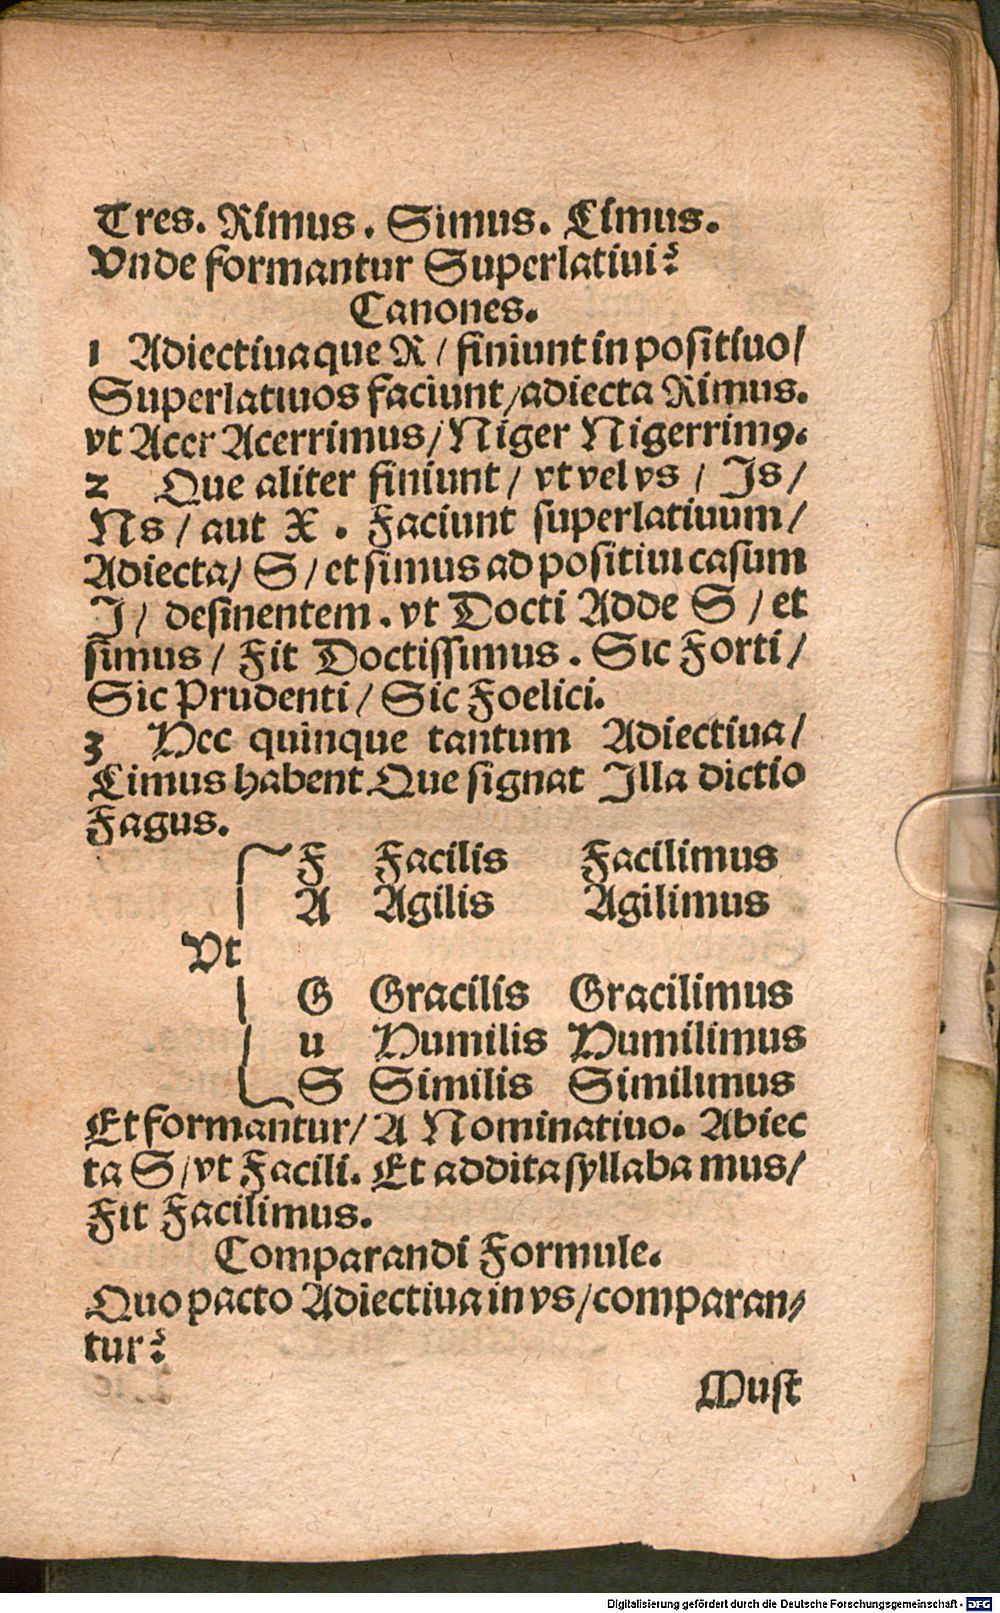 Tres. Rimus. Simus. Limus.
Vnde formantur Superlatiui?
Canones.
1 Adiectiua que R / finiunt in positiuo /
Superlatiuos faciunt / adiecta Rimus.
vt Acer Acerrimus / Niger Nigerrimꝰ.
2 Que aliter finiunt / vt vel vs / Is /
Ns / aut X . Faciunt superlatiuum /
Adiecta / S / et simus ad positiui casum
I / desinentem. vt Docti Adde S / et
simus / Fit Doctissimus. Sic Forti /
Sic Prudenti / Sic Foelici.
3 Hec quinque tantum Adiectiua /
Limus habent Que signat Illa dictio
Fagus.
F Facilis Facilimus
A Agilis Agilimus
Vt
G Gracilis Gracilimus
u Humilis Humilimus
S Similis Similimus
Et formantur / A Nominatiuo. Abiec
ta S / vt Facili. Et addita syllaba mus /
Fit Facilimus.
Comparandi Formule.
Quo pacto Adiectiua in vs / comparan⸗
tur?
Must
Digitalisierung gefördert durch die Deutsche Forschungsgemeinschaft - DFG